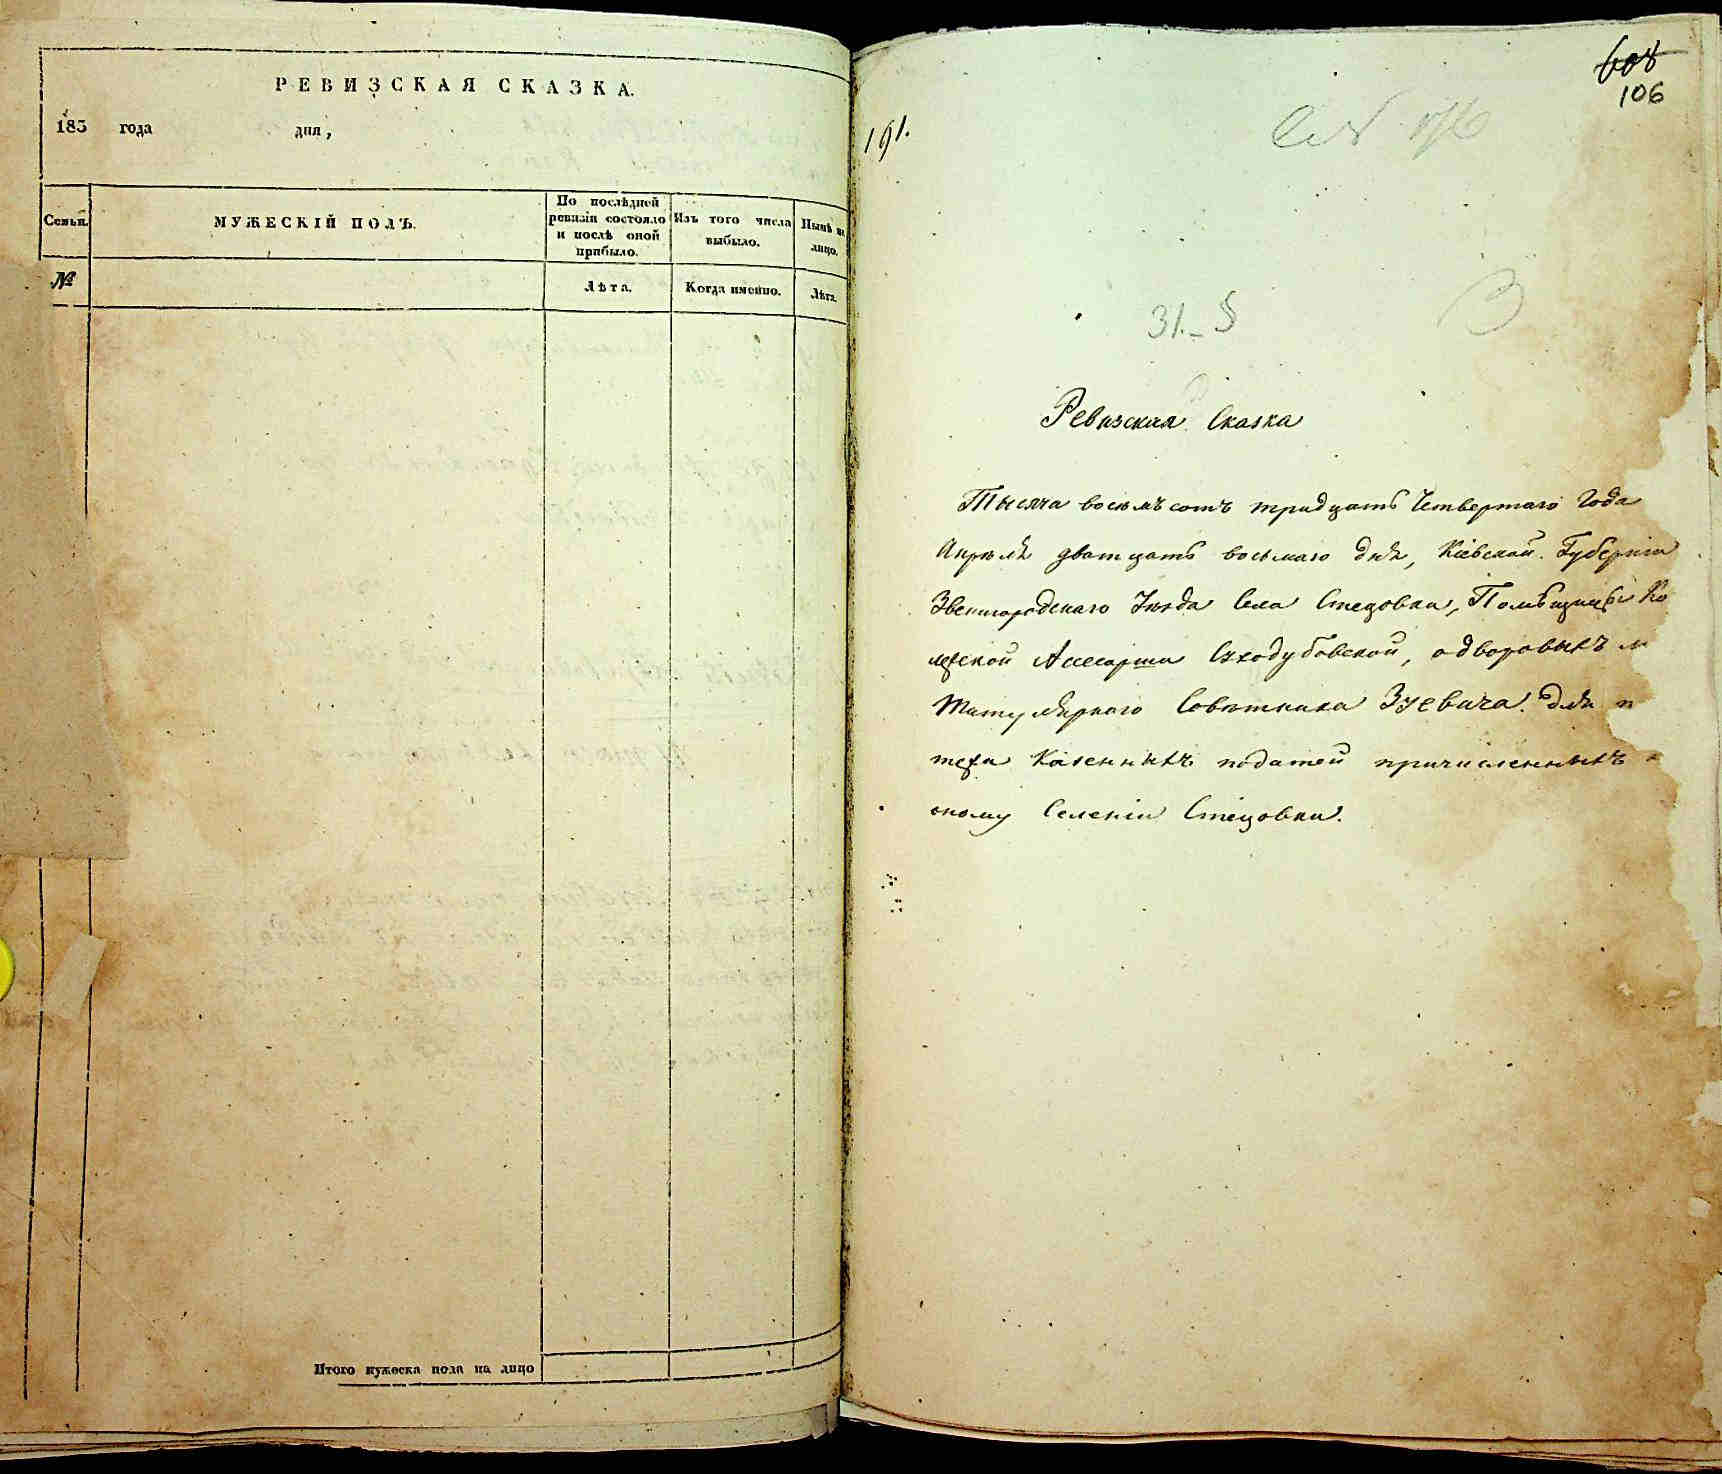 РЕВИЗСКАЯ СКАЗКА.
183 года дня,
Семьи.
МУЖЕСКІЙ ПОЛЪ.
По послѣдней
ревизіи состояло
и послѣ оной
прибыло.
Изъ того числа
выбыло.
Нынѣ на
лицо.
№
Лѣта.
Когда именно.
Лѣта.
Итого мужеска пола на лицо
608
106
191.
31.
Ревизская Сказка
Тысяча восемьсотъ тридцать Четвертаго Года
Апрѣля дватцать восьмаго дня, Кіевской Губерніи
Звенигородскаго Уѣзда Села Стецовки, Помѣщицы Ко
лежской Асесорши Сходубовской, одворовыхъ
Титулярного Совѣтника Зуевича. для п
тежа Казенныхъ податей причисленныхъ к
оному Селенію Стецовки.